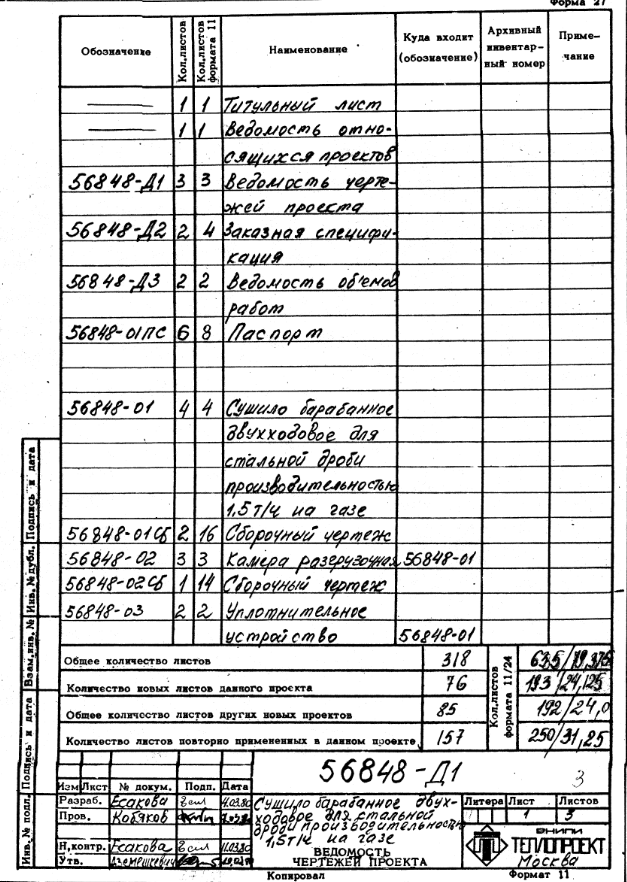 Форма 27
Обозначение Кол.листов Кол.листов формата 11 Наименование Куда входит (обозначение) Архивный инвентарный номер Примечание
1 1 Титульный лист
1 1 Ведомость отно-
сящихся проектов
56848-Д1 3 3 Ведомость черте-
жей проекта
56848-Д2 2 4 Заказная специфи-
кация
56848-Д3 2 2 Ведомость объемов
работ
56848-01ПС 6 8 Паспорт
56848-01 4 4 Сушило барабанное
двухходовое для
стальной дроби
производительностью
1,5 т/ч на газе
56848-01СБ 2 16 Сборочный чертеж
56848-02 3 3 Камера разгрузочная 56848-01
56848-02СБ 1 14 Сборочный чертеж
56848-03 2 2 Уплотнительное
устройство 56848-01
Общее количество листов 318 Кол.листов формата 11/24 635/79,375
Количество новых листов данного проекта 76 193/24,125
Общее количество листов других новых проектов 85 192/24,0
Количество листов повторно примененных в данном проекте 157 250/31,25
Инв.№ подл. Подпись и дата Взам.инв.№ Инв.№ дубл. Подпись и дата
56848-Д1 3
Изм Лист № докум. Подп. Дата
Разраб. Есакова 11.03.80
Пров. Кобяков
Н.контр. Есакова 11.03.80
Утв.
Сушило барабанное двух-
ходовое для стальной
дроби производительностью
1,5 т/ч на газе
ВЕДОМОСТЬ
ЧЕРТЕЖЕЙ ПРОЕКТА
Литера Лист Листов
1 3
ВНИПИ
ТЕПЛОПРОЕКТ
Москва
Копировал Формат 11